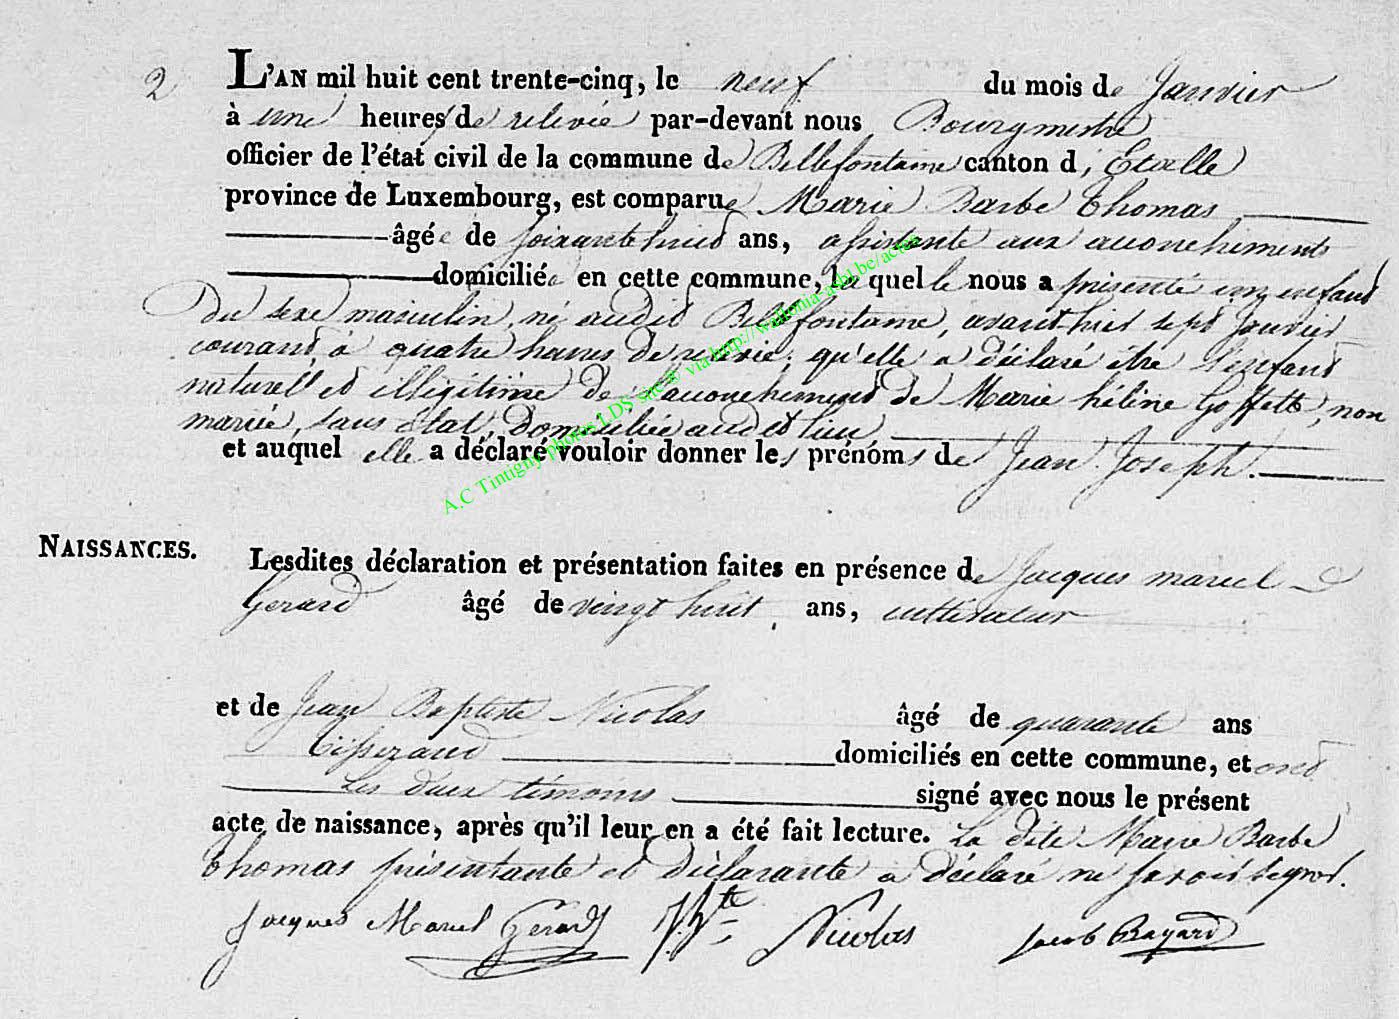 2
L'AN mil huit cent trente-cinq, le neuf du mois de Janvier
à une heures de relevée par-devant nous Bourgmestre
officier de l'état civil de la commune de Bellefontaine canton d'Etalle
province de Luxembourg, est comparue Marie Barbe Thomas
âgée de soixante huit ans, assistante aux accouchements
domiciliée en cette commune, laquelle nous a présenté un enfant
du sexe masculin, né audit Bellefontaine, avant hier sept Janvier
courant, à quatre heures de relevée, qu'elle a déclaré être l'enfant
naturell et illégitime de l'accouchement de Marie hélène Goffette, non
mariée, sans état, domiciliée audit lieu,
et auquel elle a déclaré vouloir donner les prénoms de Jean Joseph.
NAISSANCES.
Lesdites déclaration et présentation faites en présence de Jacques marcel
Gerard âgé de vingt huit ans, cultivateur
et de Jean Baptiste Nicolas âgé de quarante ans
tisserand domiciliés en cette commune, et ont
les deux témoins signé avec nous le présent
acte de naissance, après qu'il leur en a été fait lecture. La dite Marie Barbe
Thomas présentante et déclarante a déclaré ne savoir signer.
Jacques Marcel Gerard J. Bte Nicolas Jacob Bayard
A.C Tintigny photos LDS sites via http://wallonia-asbl.be/actes